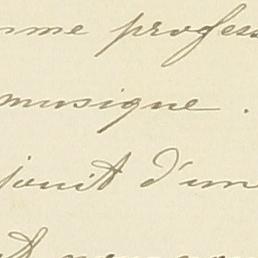 mme profess
musique.
jouit d'un